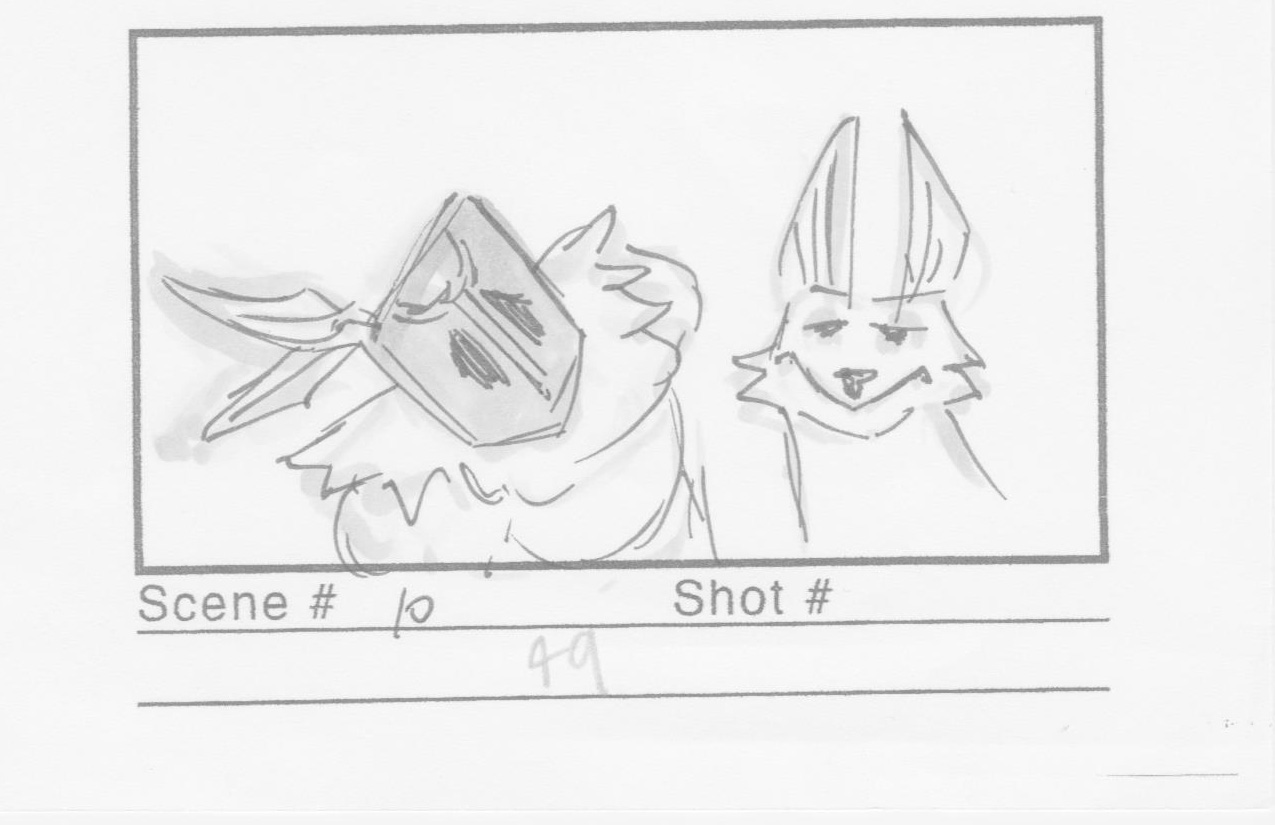 Scene # 10 Shot #
49